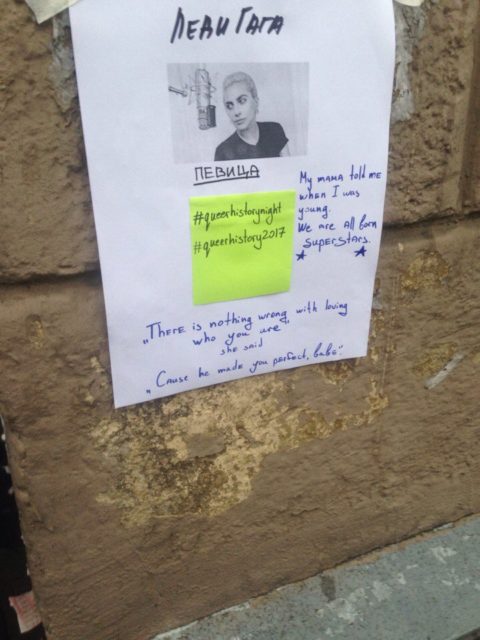 Леди Гага
ПЕВИЦА
My mama told me
when I was
young.
We are all born
superstars.
#queerhistorynight
#queerhistory2017
„There is nothing wrong with loving
who you are"
she said
„Cause he made you perfect, babe".